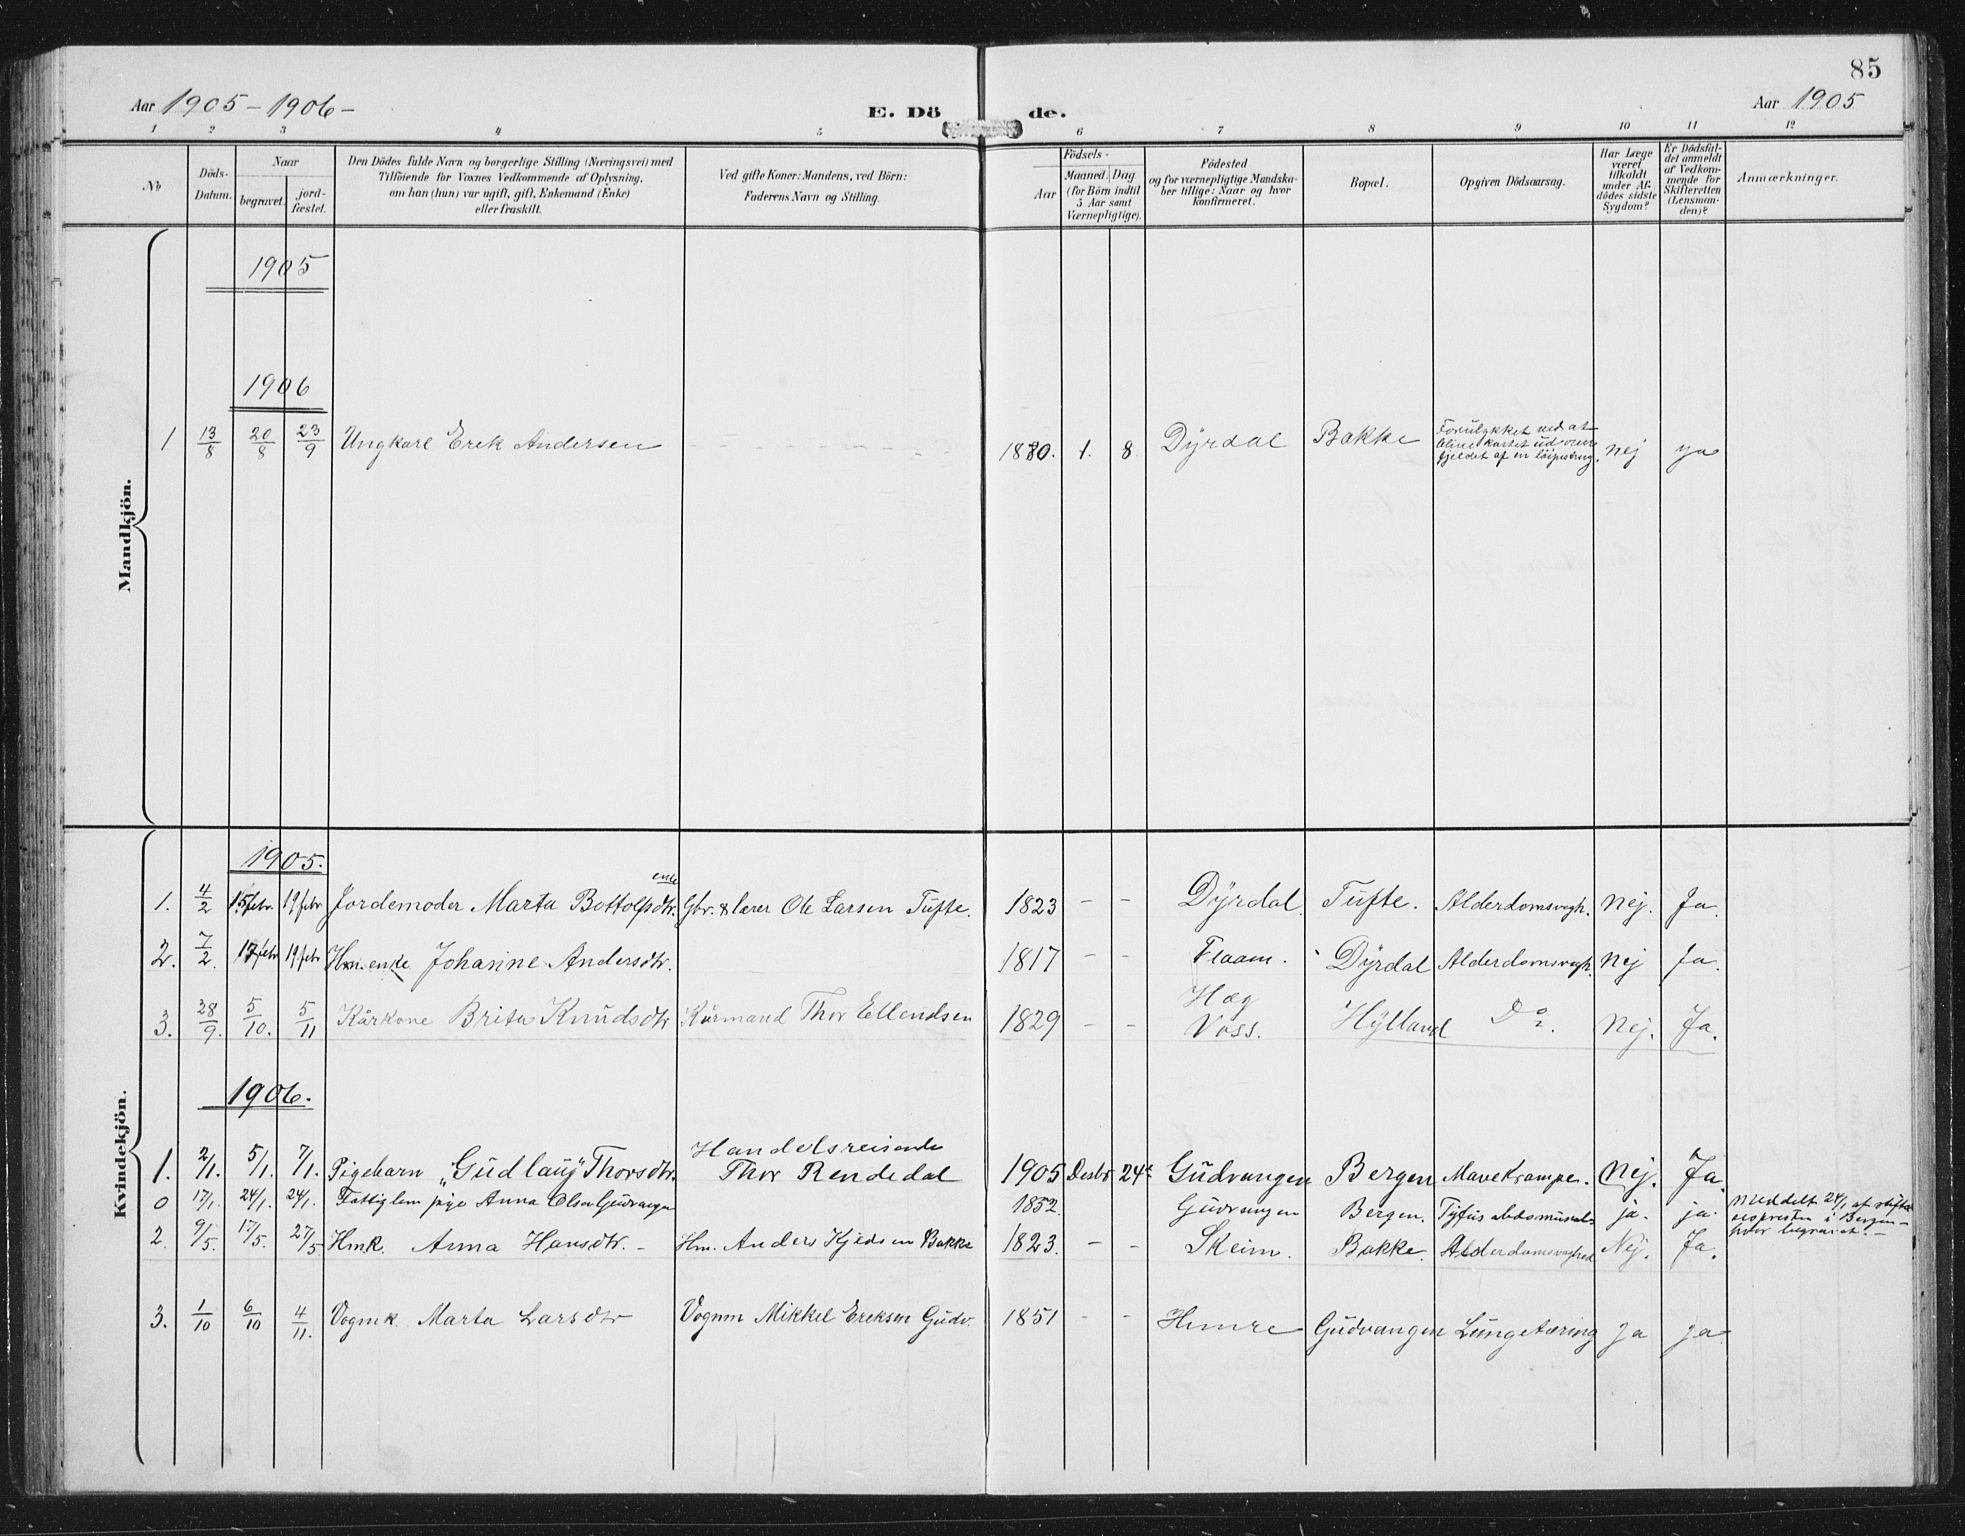 85
Aar 1905-1906-
E. Dö de.
Aar 1905
1 2 3 4 5 6 7 8 9 10 11 12
No
Döds-Datum.
Naar
begravet.
jord-fæstet.
Den Dödes fulde Navn og borgerlige Stilling (Næringsvei) med
Tilföiende for Voxnes Vedkommende af Oplysning,
om han (hun) var ugift, gift, Enkemand (Enke)
eller fraskilt.
Ved gifte Koner: Mandens, ved Börn:
Faderens Navn og Stilling.
Födsels-
Aar
Maaned. Dag.
(for Börn indtil
5 Aar samt
Værnepligtige).
Födested
og for værnepligtige Mandska-
ber tillige: Naar og hvor
Konfirmeret.
Bopæl.
Opgiven Dödsaarsag.
Har Læge
været
tilkaldt
under Af-
dödes sidste
Sygdom?
Er Dödsfal-
det anmeldt
af Vedkom-
mende for
Skifteretten
(Lensman-
den)?
Anmærkninger.
Mandkjön.
1905
1906
1 13/8 20/8 23/9 Ungkarl Erik Andersen 1880. 1. 8 Dÿrdal Bakke Forulykket ved at
blive kastet ud over
fjeldet af en löipestreng. nej ja
Kvindekjön.
1905.
enke
1. 4/2 15 febr. 19 febr Jordemoder Marta Bottolfsdtr. Gbr. & lærer Ole Larsen Tufte. 1823 - - Dÿrdal. Tufte. Alderdomsvagh. Nej. Ja.
2. 7/2. 17 febr 19 febr Hm. enke Johanne Andersdtr. 1817 - - Flaam. Dÿrdal Alderdomsvagh. Nej Ja.
3. 28/9. 5/10. 5/11 Kårkone Brita Knudsdtr Kårmand Thor Ellendsen 1829 - - Hæg
Voss. Hÿlland Do. Nej. Ja.
1906.
Handelsreisende
1. 2/1. 5/1. 7/1. Pigebarn "Gudlaug" Thorsdtr. Thor Rendedal 1905 Desbr 24de Gudvangen Bergen Mavekrampe. Nej. Ja.
0 17/1. 24/1. 24/1. Fattiglem pige Anna Olsen Gudvangen 1852. Gudvangen Bergen. Tyfus abdominalis ja. ja. Meddelt 24/1 af stifts-
presten i Bergen-
hvor begravet.-
2. 9/5. 17/5. 27/5 Hmk. Anna Hansdtr. - Hm. Anders Kjeldsen Bakke 1823. - - Skeim. Bakke. Alderdomsvaghed Nej. Ja.
3. 1/10 6/10 4/11. Vogmk. Marta Larsdtr Vogmm Mikkel Eriksen Gudv. 1851 - - Humre Gudvangen Lungetæring Ja ja.